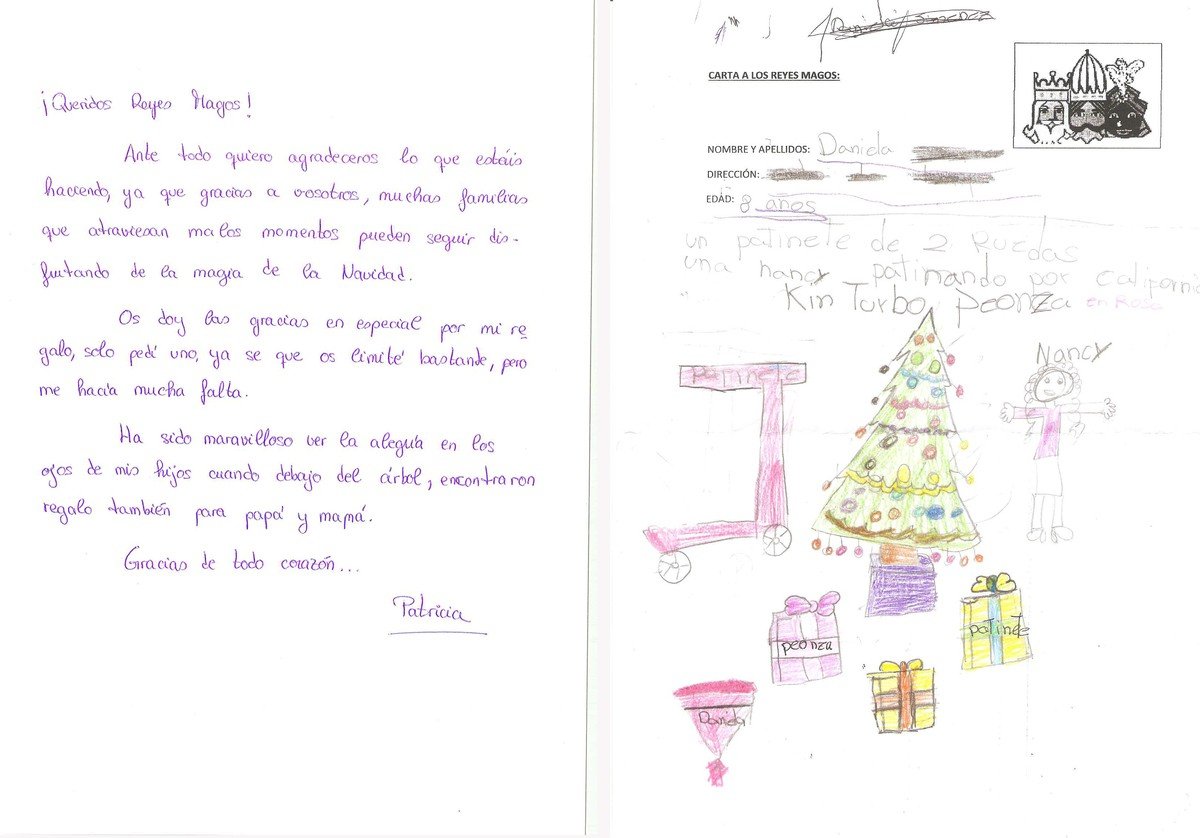 ¡Queridos Reyes Magos!
Ante todo quiero agradeceros lo que estáis
haciendo, ya que gracias a vosotros, muchas familias
que atraviesan malos momentos pueden seguir dis-
frutando de la magia de la Navidad.
Os doy las gracias en especial por mi re
galo, solo pedí uno, ya se que os limité bastande, pero
me hacía mucha falta.
Ha sido maravilloso ver la alegría en los
ojos de mis hijos cuando debajo del árbol, encontraron
regalo también para papá y mamá.
Gracias de todo corazón...
Patricia
CARTA A LOS REYES MAGOS:
NOMBRE Y APELLIDOS: Daniela
DIRECCIÓN:
EDAD: 8 años
un patinete de 2 Ruedas
una nancy patinando por california
Kin Turbo peonza en Rosa
patinete
Nancy
peonza
patinete
Daniela